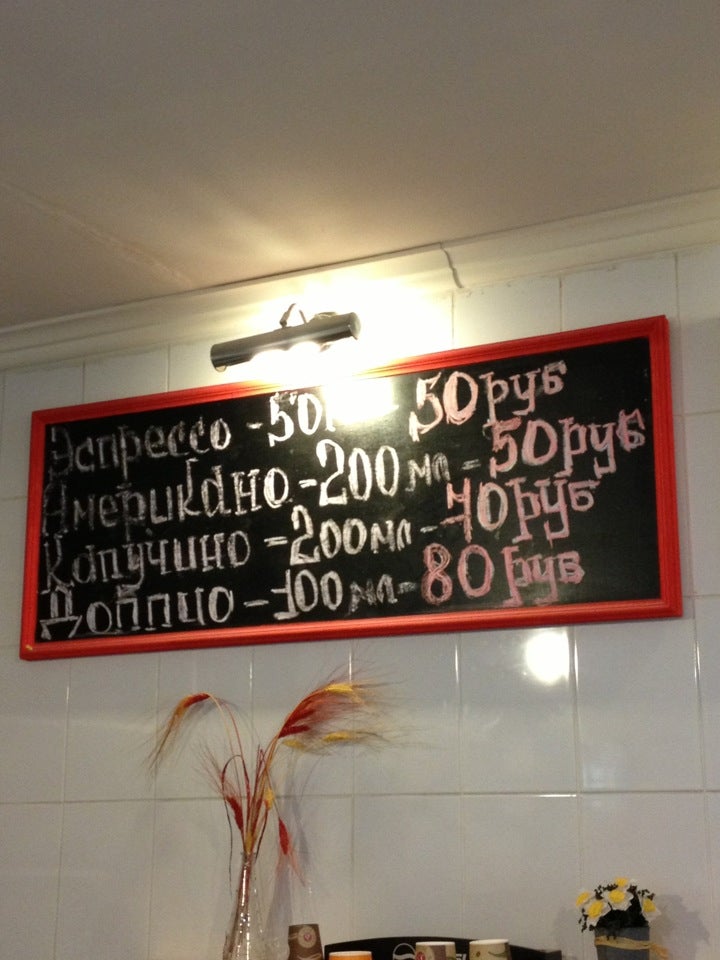 Эспрессо - 50 - 50 руб
Американо - 200 мл = 50 руб
Капучино = 200 мл - 70 руб
Доппио - 100 мл - 80 руб